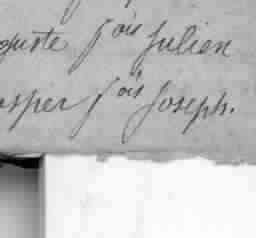 guste fois Julien
osper fois Joseph.